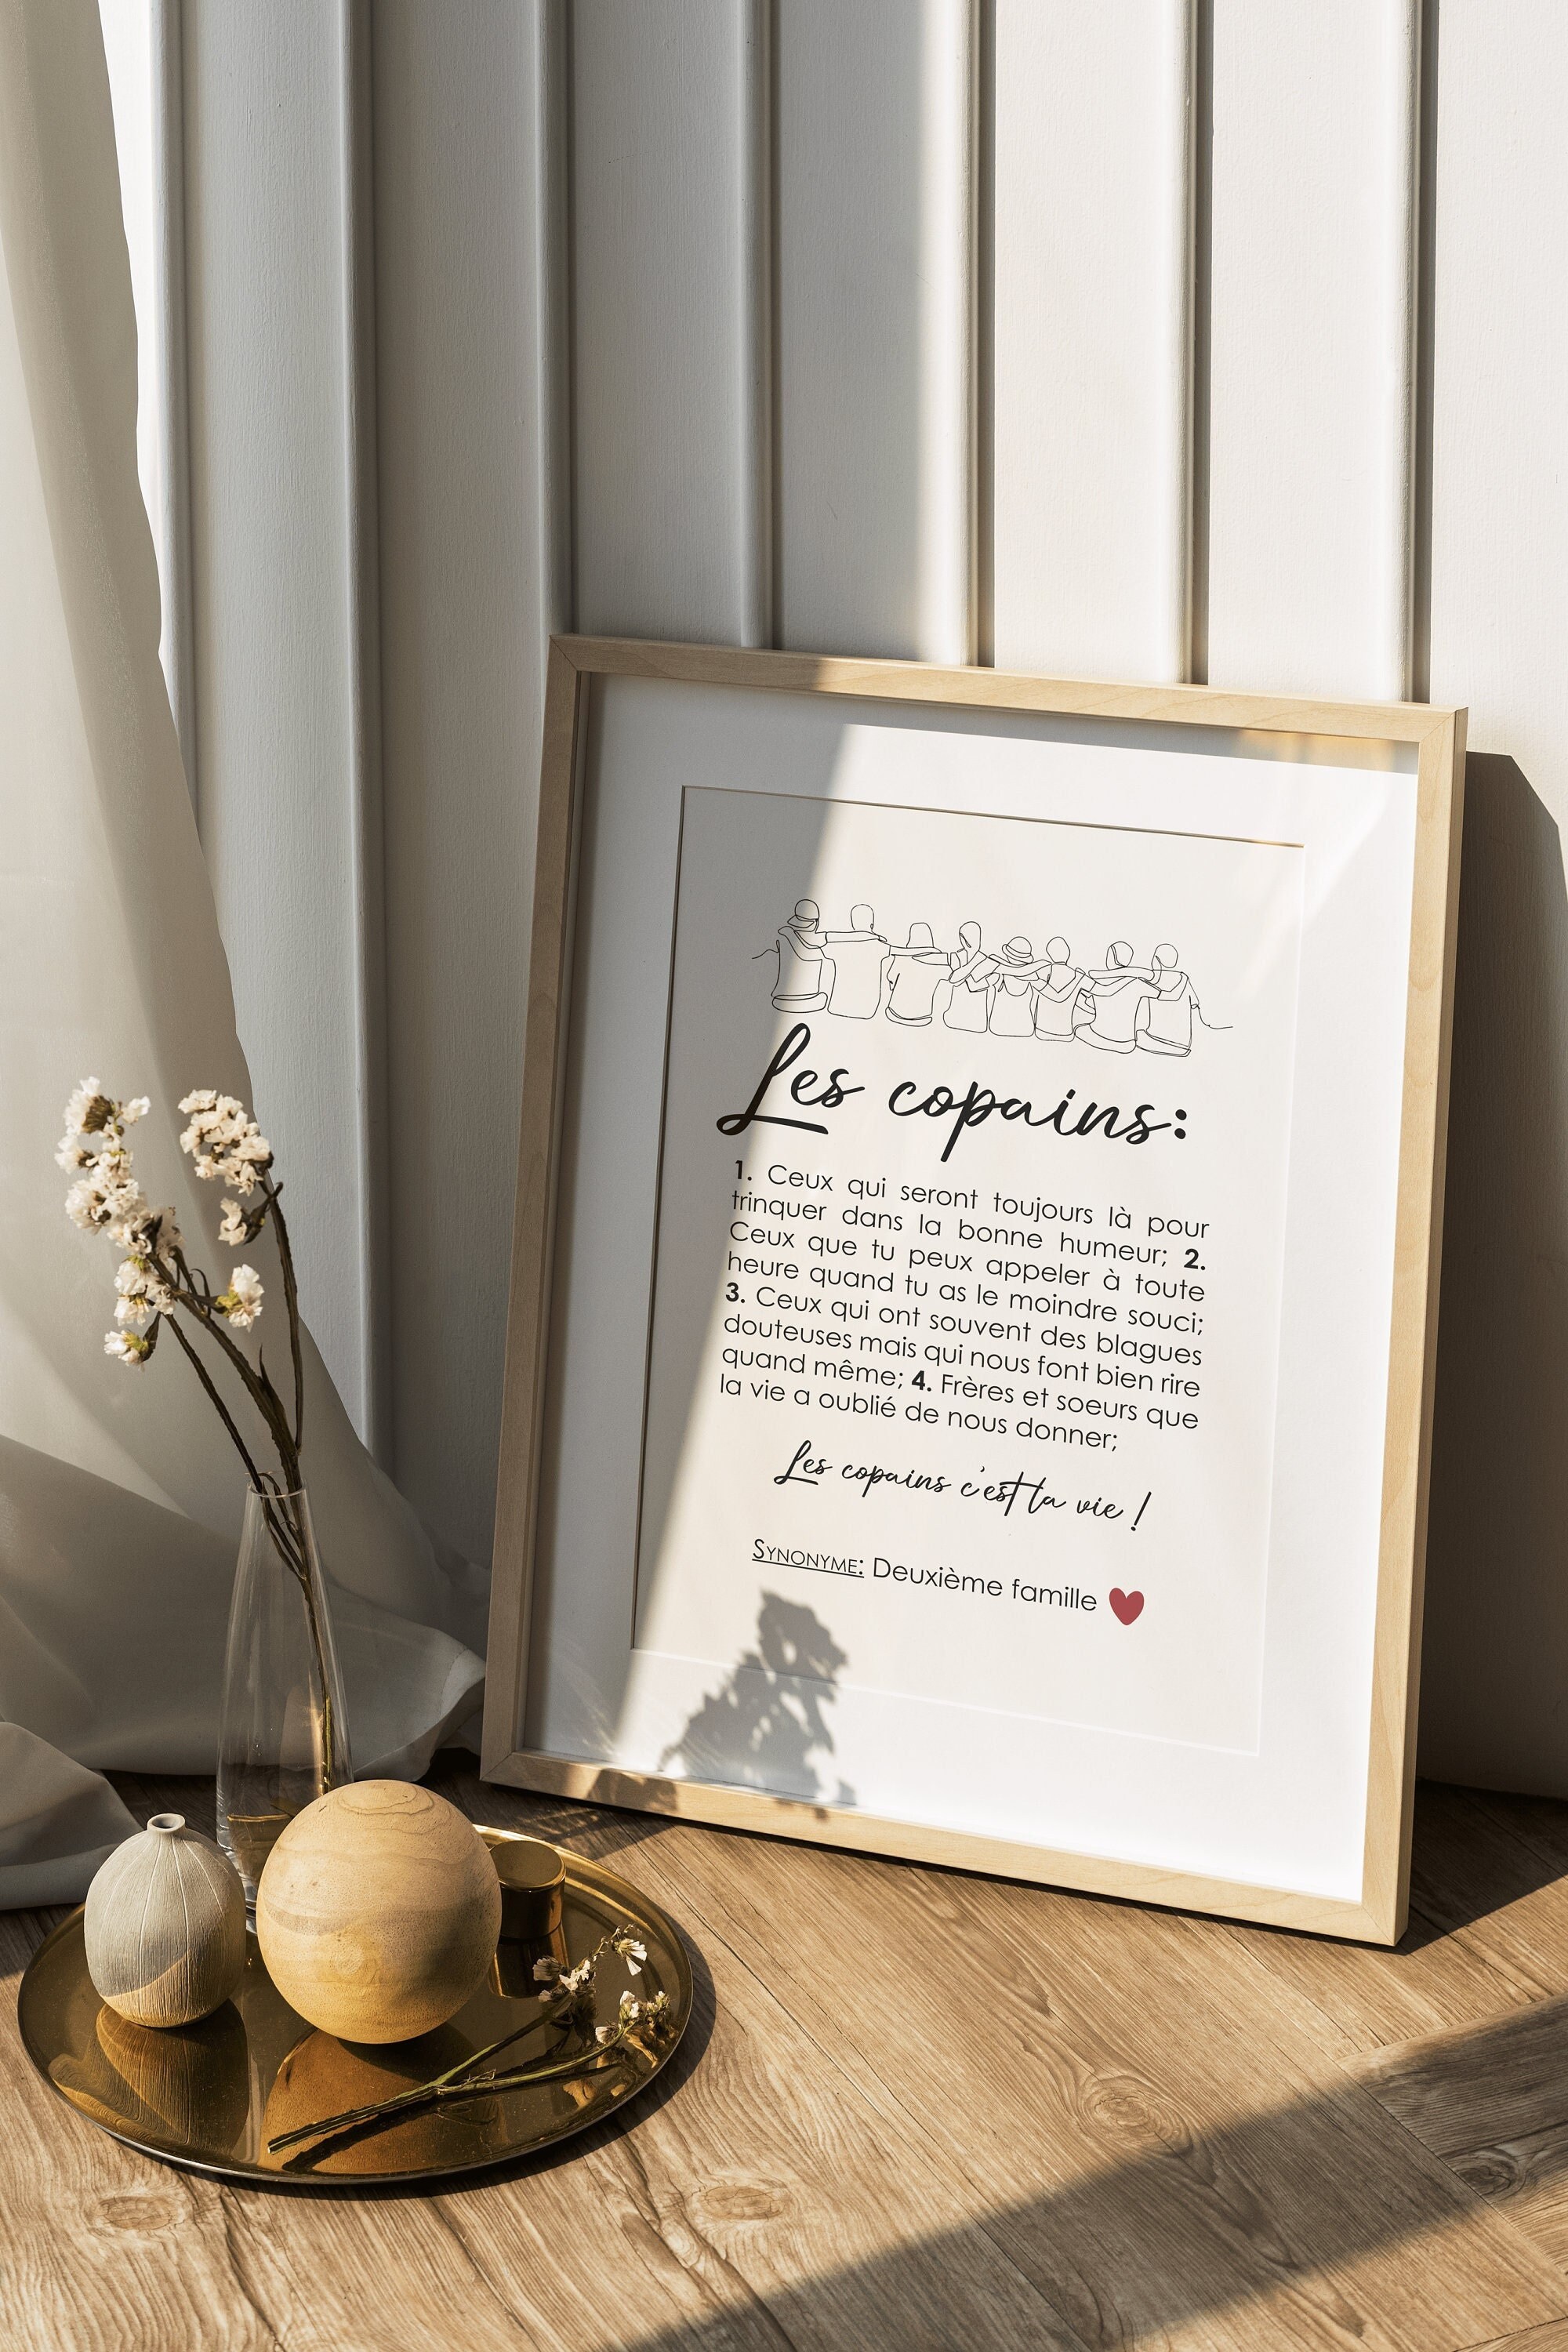 Les copains:
1. Ceux qui seront toujours là pour
trinquer dans la bonne humeur; 2.
Ceux que tu peux appeler à toute
heure quand tu as le moindre souci;
3. Ceux qui ont souvent des blagues
douteuses mais qui nous font bien rire
quand même; 4. Frères et soeurs que
la vie a oublié de nous donner;
Les copains c'est la vie !
SYNONYME: Deuxième famille